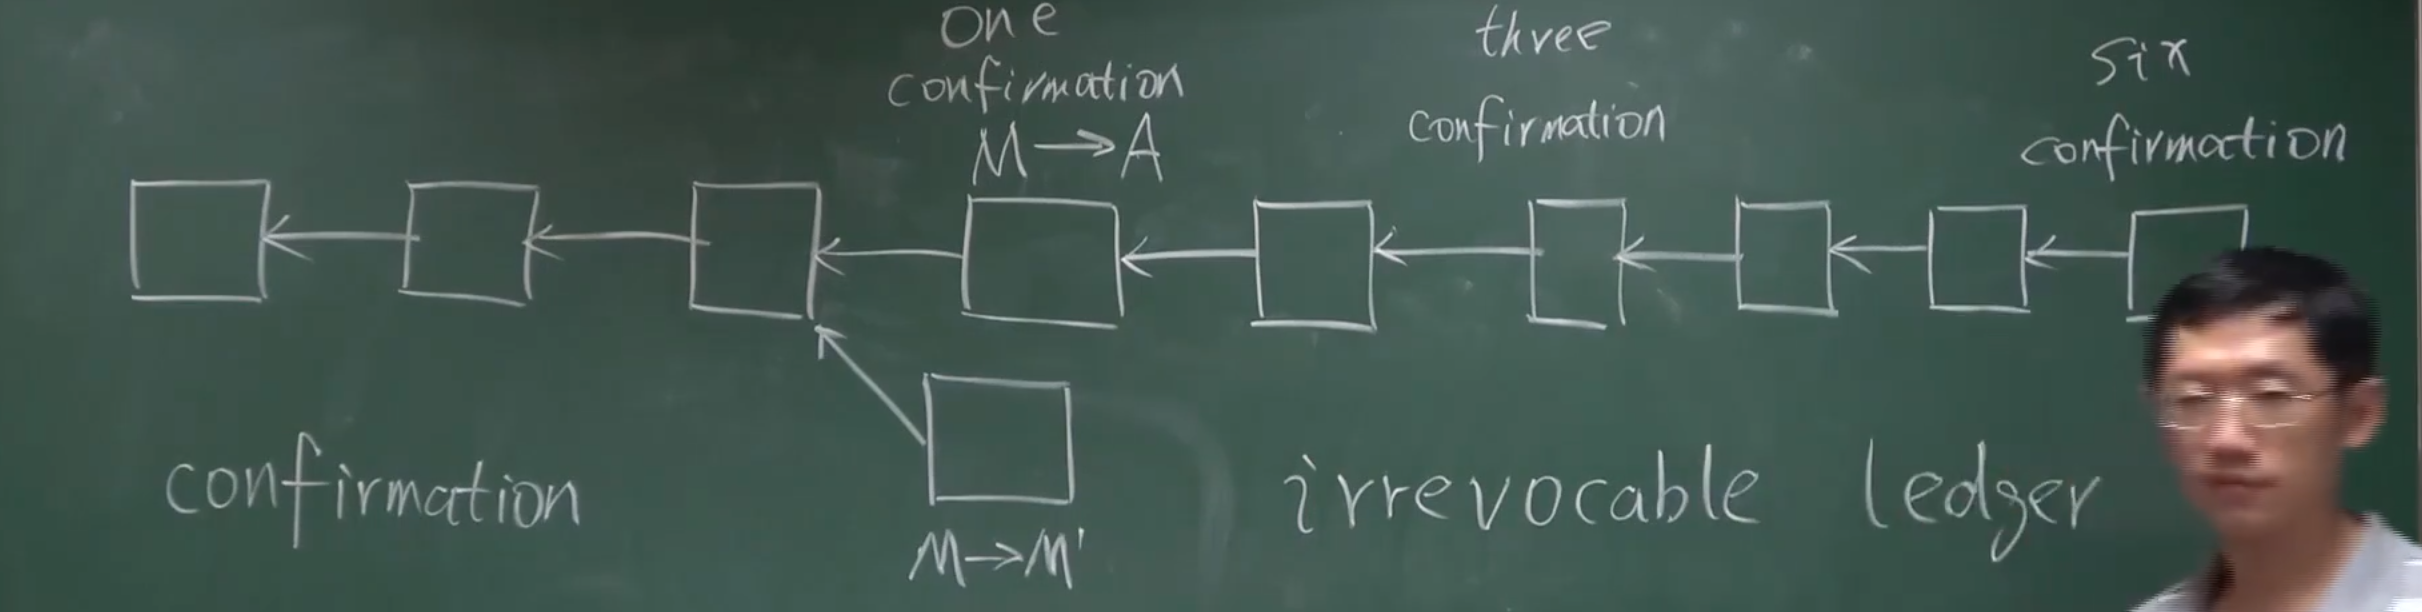 one
confirmation
M → A
three
confirmation
six
confirmation
confirmation
M → M'
irrevocable ledger